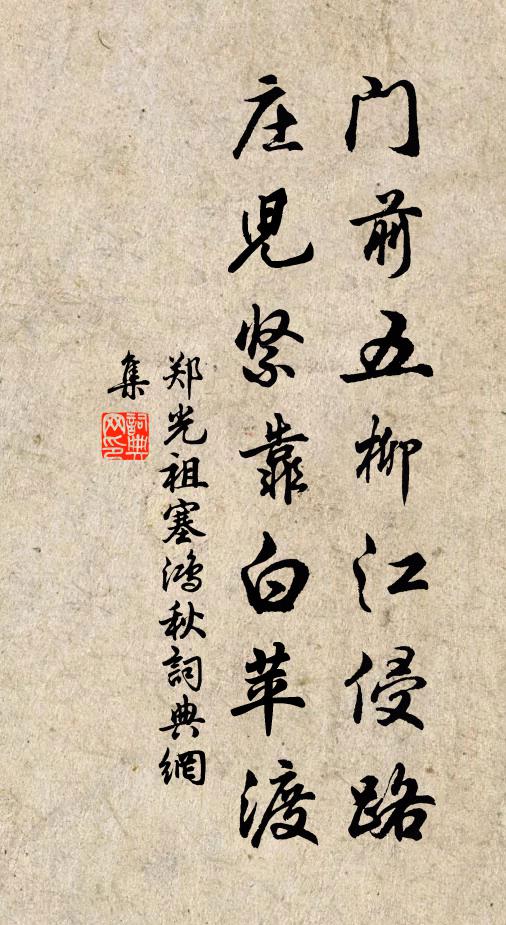 门前五柳江侵路
庄児紧靠白苹渡
郑光祖塞鸿秋詞典網
集
詞典
网印